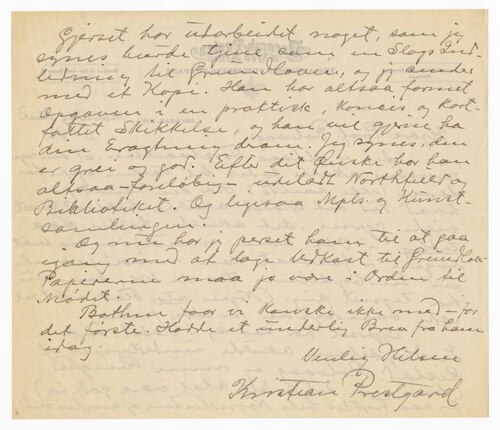 Gjerset har udarbeidet noget, som jeg
synes burde tjene som en Slags Ind-
ledning til Grundloven, og jeg sender
med et Kopi. Han har altsaa formet
Opgaven i en praktisk, koncis og kort-
fattet Skikkelse, og han vil gjerne ha
din Eragtning derom. Jeg synes, den
er grei og god. Efter dit Ønske har han
altsaa – foreløbig – udeladt Northfield og
Biblioteket. Og ligesaa Mpls. og Kunst-
samlingen.
Og nu har jeg perset ham til at gaa
igang med at lage Udkast til Grundlov.
Papirerne maa jo være i Orden til
Mødet.
Bothne faar vi kanske ikke med – for
det første. Hadde et underlig Brev fra ham
idag.
Venlig Hilsen
Kristian Prestgard